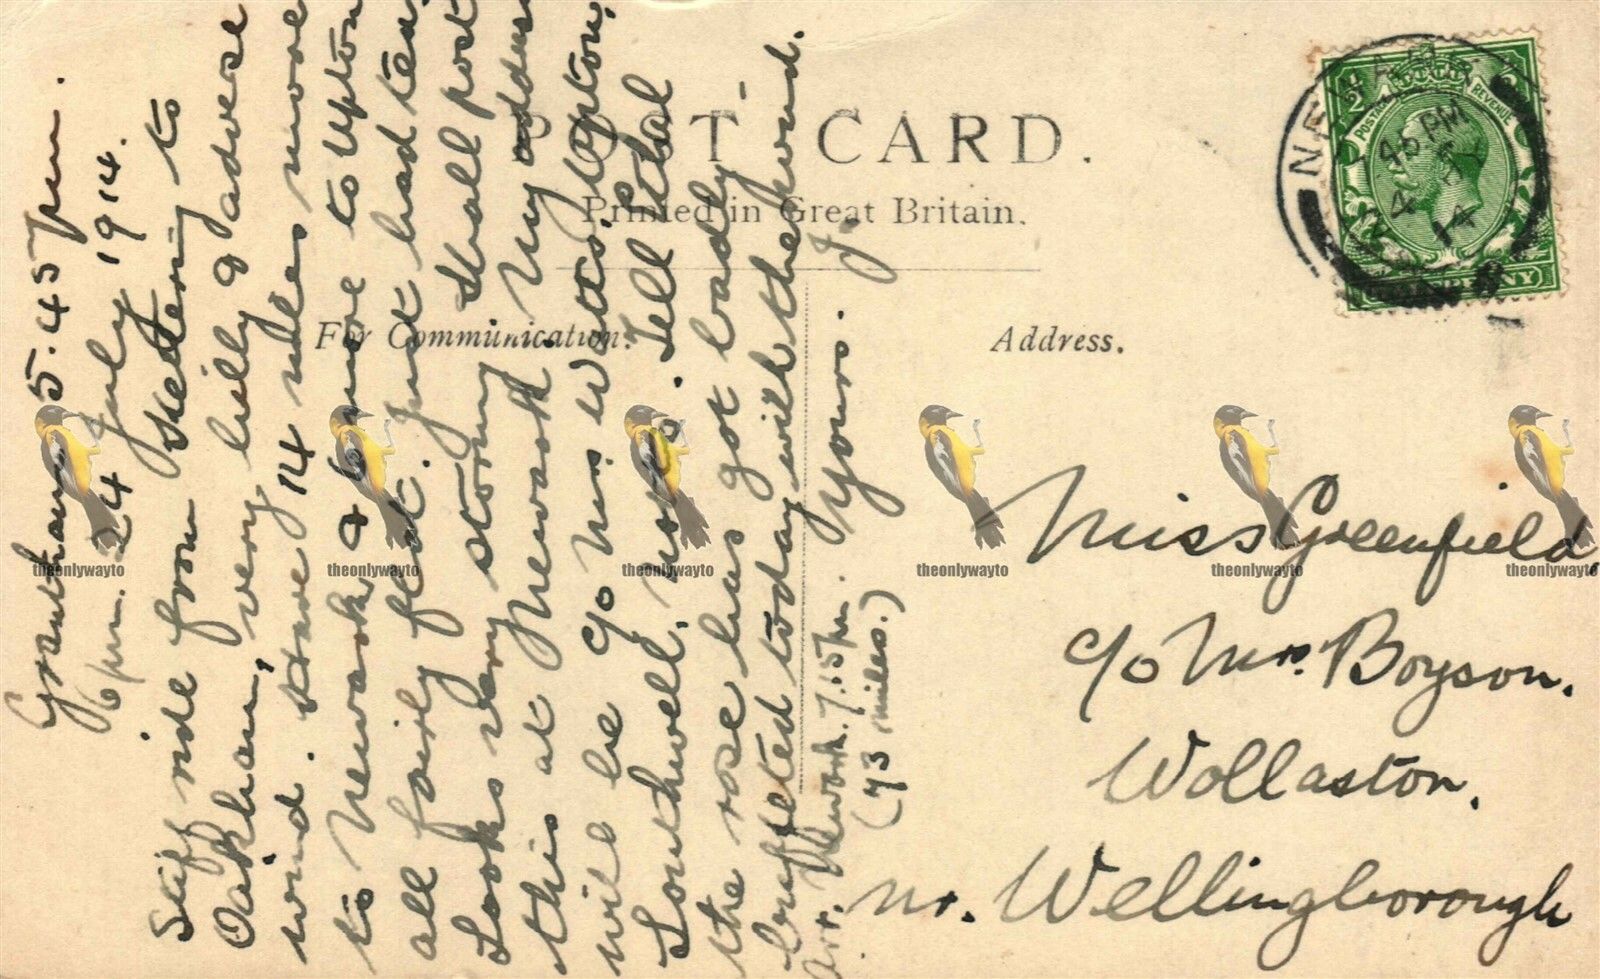 POST CARD.
Printed in Great Britain.
For Communication.
Address.
Grantham 5.45 pm.
6 pm. 24 July 1914.
Stiff ride from Kettering to
Oakham, very hilly & adverse
wind. Have 14 miles more
to Newark & 6 more to Upton
all fairly flat. Just had tea.
Looks very stormy. Shall post
this at Newark. My address
will be c/o Mrs Watts. Upton,
Southwell. Notts. Tell Hal
the rose has got badly
buffeted today with the wind.
Yours. J.
Arr. Newark. 7.15 pm.
(73 miles.)
Miss Greenfield
c/o Mrs. Boyson.
Wollaston.
nr. Wellingborough
NEWARK
45 PM
24 JY
14
POSTAGE
REVENUE
HALFPENNY
theonlywayto
theonlywayto
theonlywayto
theonlywayto
theonlywayto
theonlywayto